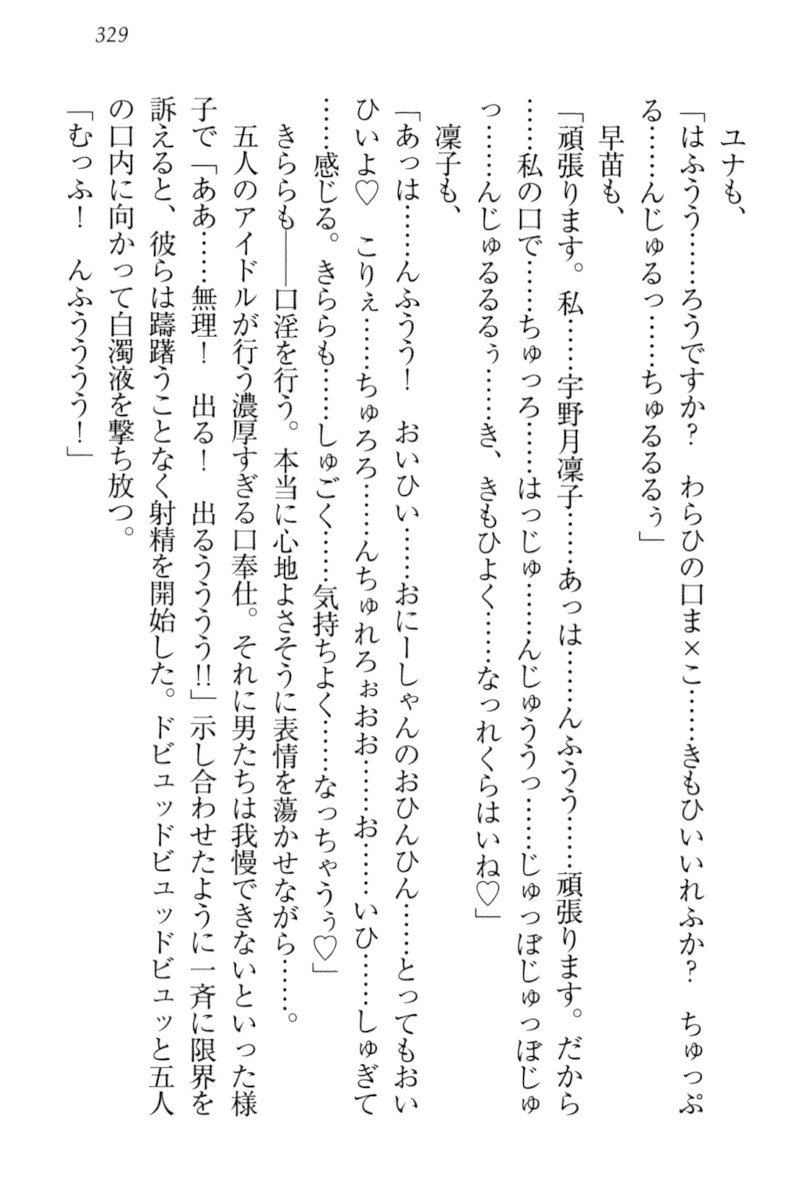 329
ユナも、
「はふうう……ろうですか？　わらひの口ま×こ……きもひいいれふか？　ちゅっぷ
る……んじゅるっ……ちゅるるるぅ」
早苗も、
「頑張ります。私……宇野月凜子……あっは……んふうう……頑張ります。だから
……私の口で……ちゅっろ……はっじゅ……んじゅううっ……じゅっぽじゅっぽじゅ
っ……んじゅるるるぅ……き、きもひよく……なっれくらはいね♡」
凜子も、
「あっは……んふうう！　おいひい……おにーしゃんのおひんひん……とってもおい
ひいよ♡　こりぇ……ちゅろろ……んちゅれろぉおお……お……いひ……しゅぎて
……感じる。きららも……しゅごく……気持ちよく……なっちゃうぅ♡」
きららも――口淫を行う。本当に心地よさそうに表情を蕩かせながら……。
五人のアイドルが行う濃厚すぎる口奉仕。それに男たちは我慢できないといった様
子で「ああ……無理！　出る！　出るうううう!!」示し合わせたように一斉に限界を
訴えると、彼らは躊躇うことなく射精を開始した。ドビュッドビュッドビュッと五人
の口内に向かって白濁液を撃ち放つ。
「むっふ！　んふうううう！」